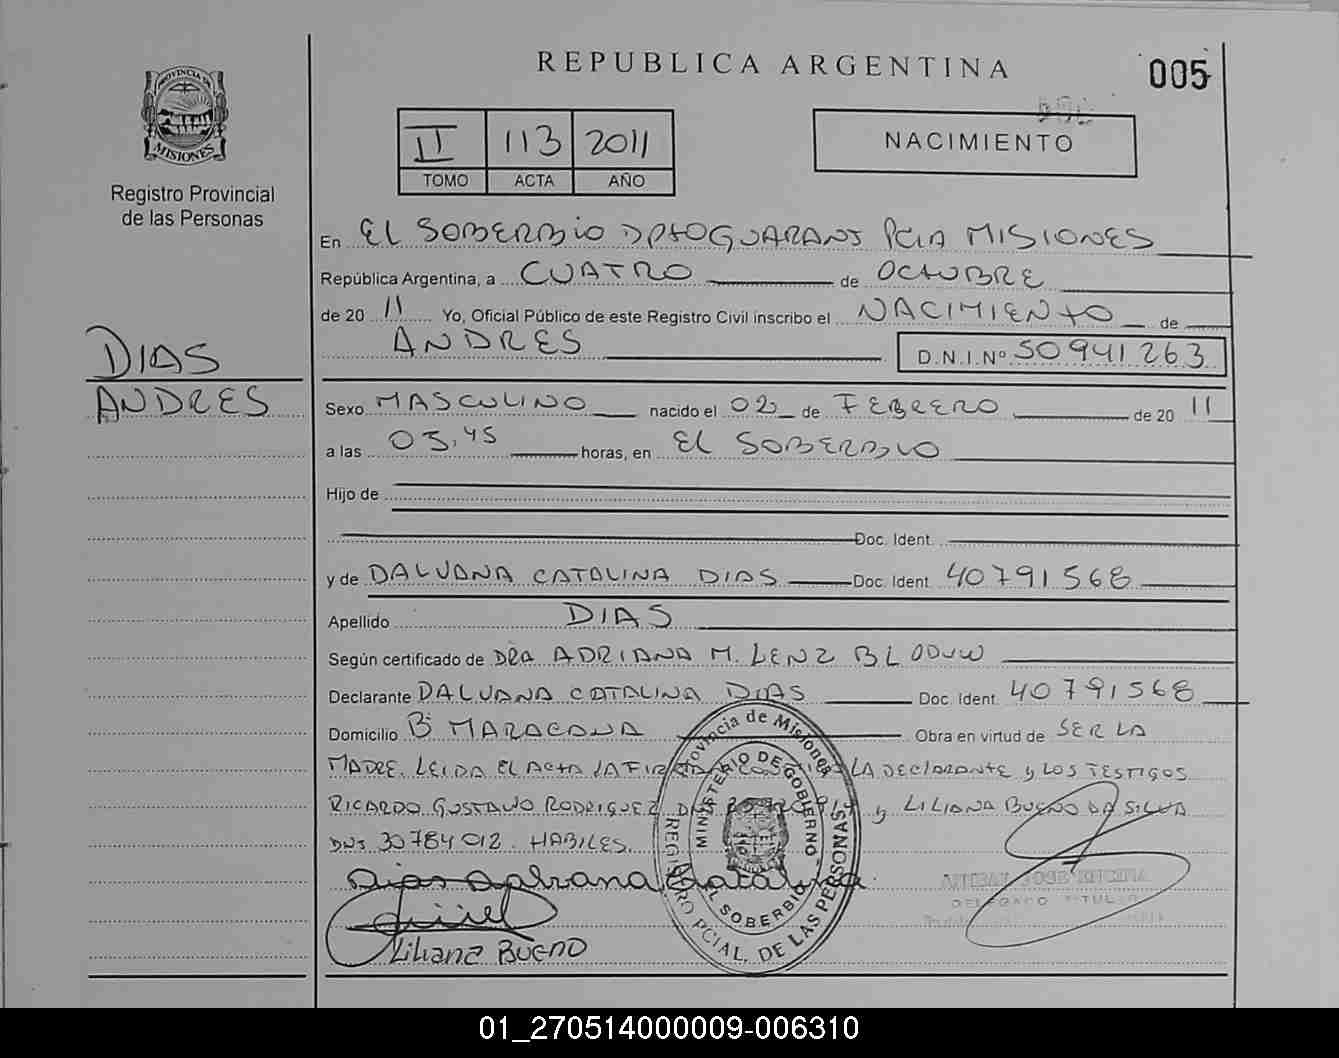 REPUBLICA ARGENTINA
005
PROVINCIA DE
MISIONES
Registro Provincial
de las Personas
II 113 2011
TOMO ACTA AÑO
NACIMIENTO
En EL SOBERBIO DPTO GUARANI PCIA MISIONES
República Argentina, a CUATRO de OCTUBRE
de 20 11 Yo, Oficial Público de este Registro Civil inscribo el NACIMIENTO de
ANDRES D.N.I.Nº 50941263
DIAS
ANDRES
Sexo MASCULINO nacido el 02 de FEBRERO de 20 11
a las 03,45 horas, en EL SOBERBIO
Hijo de
Doc. Ident.
y de DALVANA CATALINA DIAS Doc. Ident. 40791568
Apellido DIAS
Según certificado de DRA ADRIANA M. LENZ
Declarante DALVANA CATALINA DIAS Doc. Ident. 40791568
Domicilio Bº MARACANA Obra en virtud de SER LA
MADRE. LEIDA EL ACTA LA FIRMAN LA DECLARANTE y LOS TESTIGOS
RICARDO GUSTAVO RODRIGUEZ DNI y LILIANA BUENO DA SILVA
DNI 30784012. HABILES.
Dias Dalvana Catalina
Liliana BUENO
Provincia de Misiones
MINISTERIO DE GOBIERNO
EL SOBERBIO
REGISTRO PCIAL. DE LAS PERSONAS
DELEGADO TITULAR
01_270514000009-006310